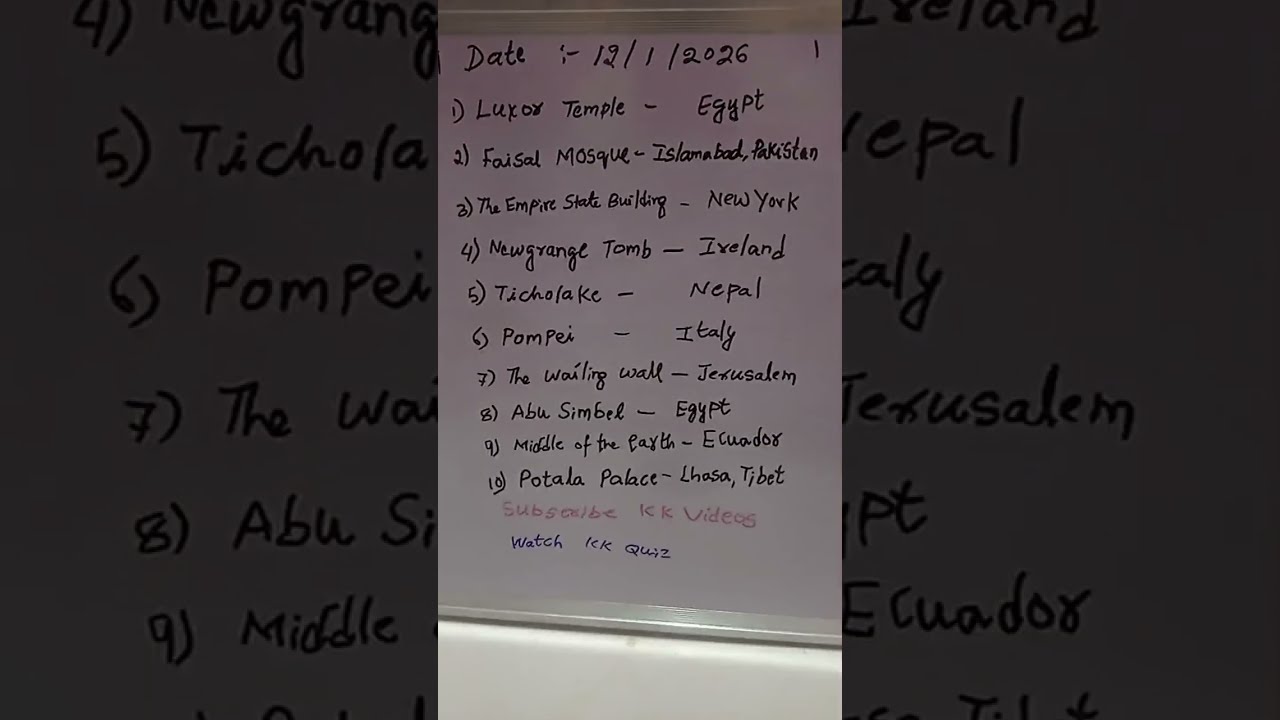 Date :- 12/1/2026 1
1) Luxor Temple - Egypt
2) Faisal Mosque - Islamabad, Pakistan
3) The Empire State Building - New York
4) Newgrange Tomb - Ireland
5) Ticholake - Nepal
6) Pompei - Italy
7) The Wailing Wall - Jerusalem
8) Abu Simbel - Egypt
9) Middle of the Earth - Ecuador
10) Potala Palace - Lhasa, Tibet
Subscribe KK Videos
Watch KK Quiz